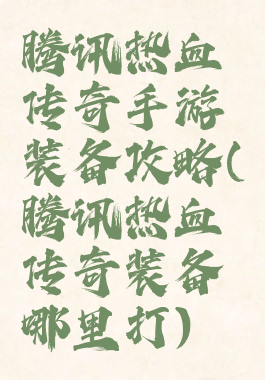 腾讯热血
传奇手游
装备攻略(
腾讯热血
传奇装备
哪里打)